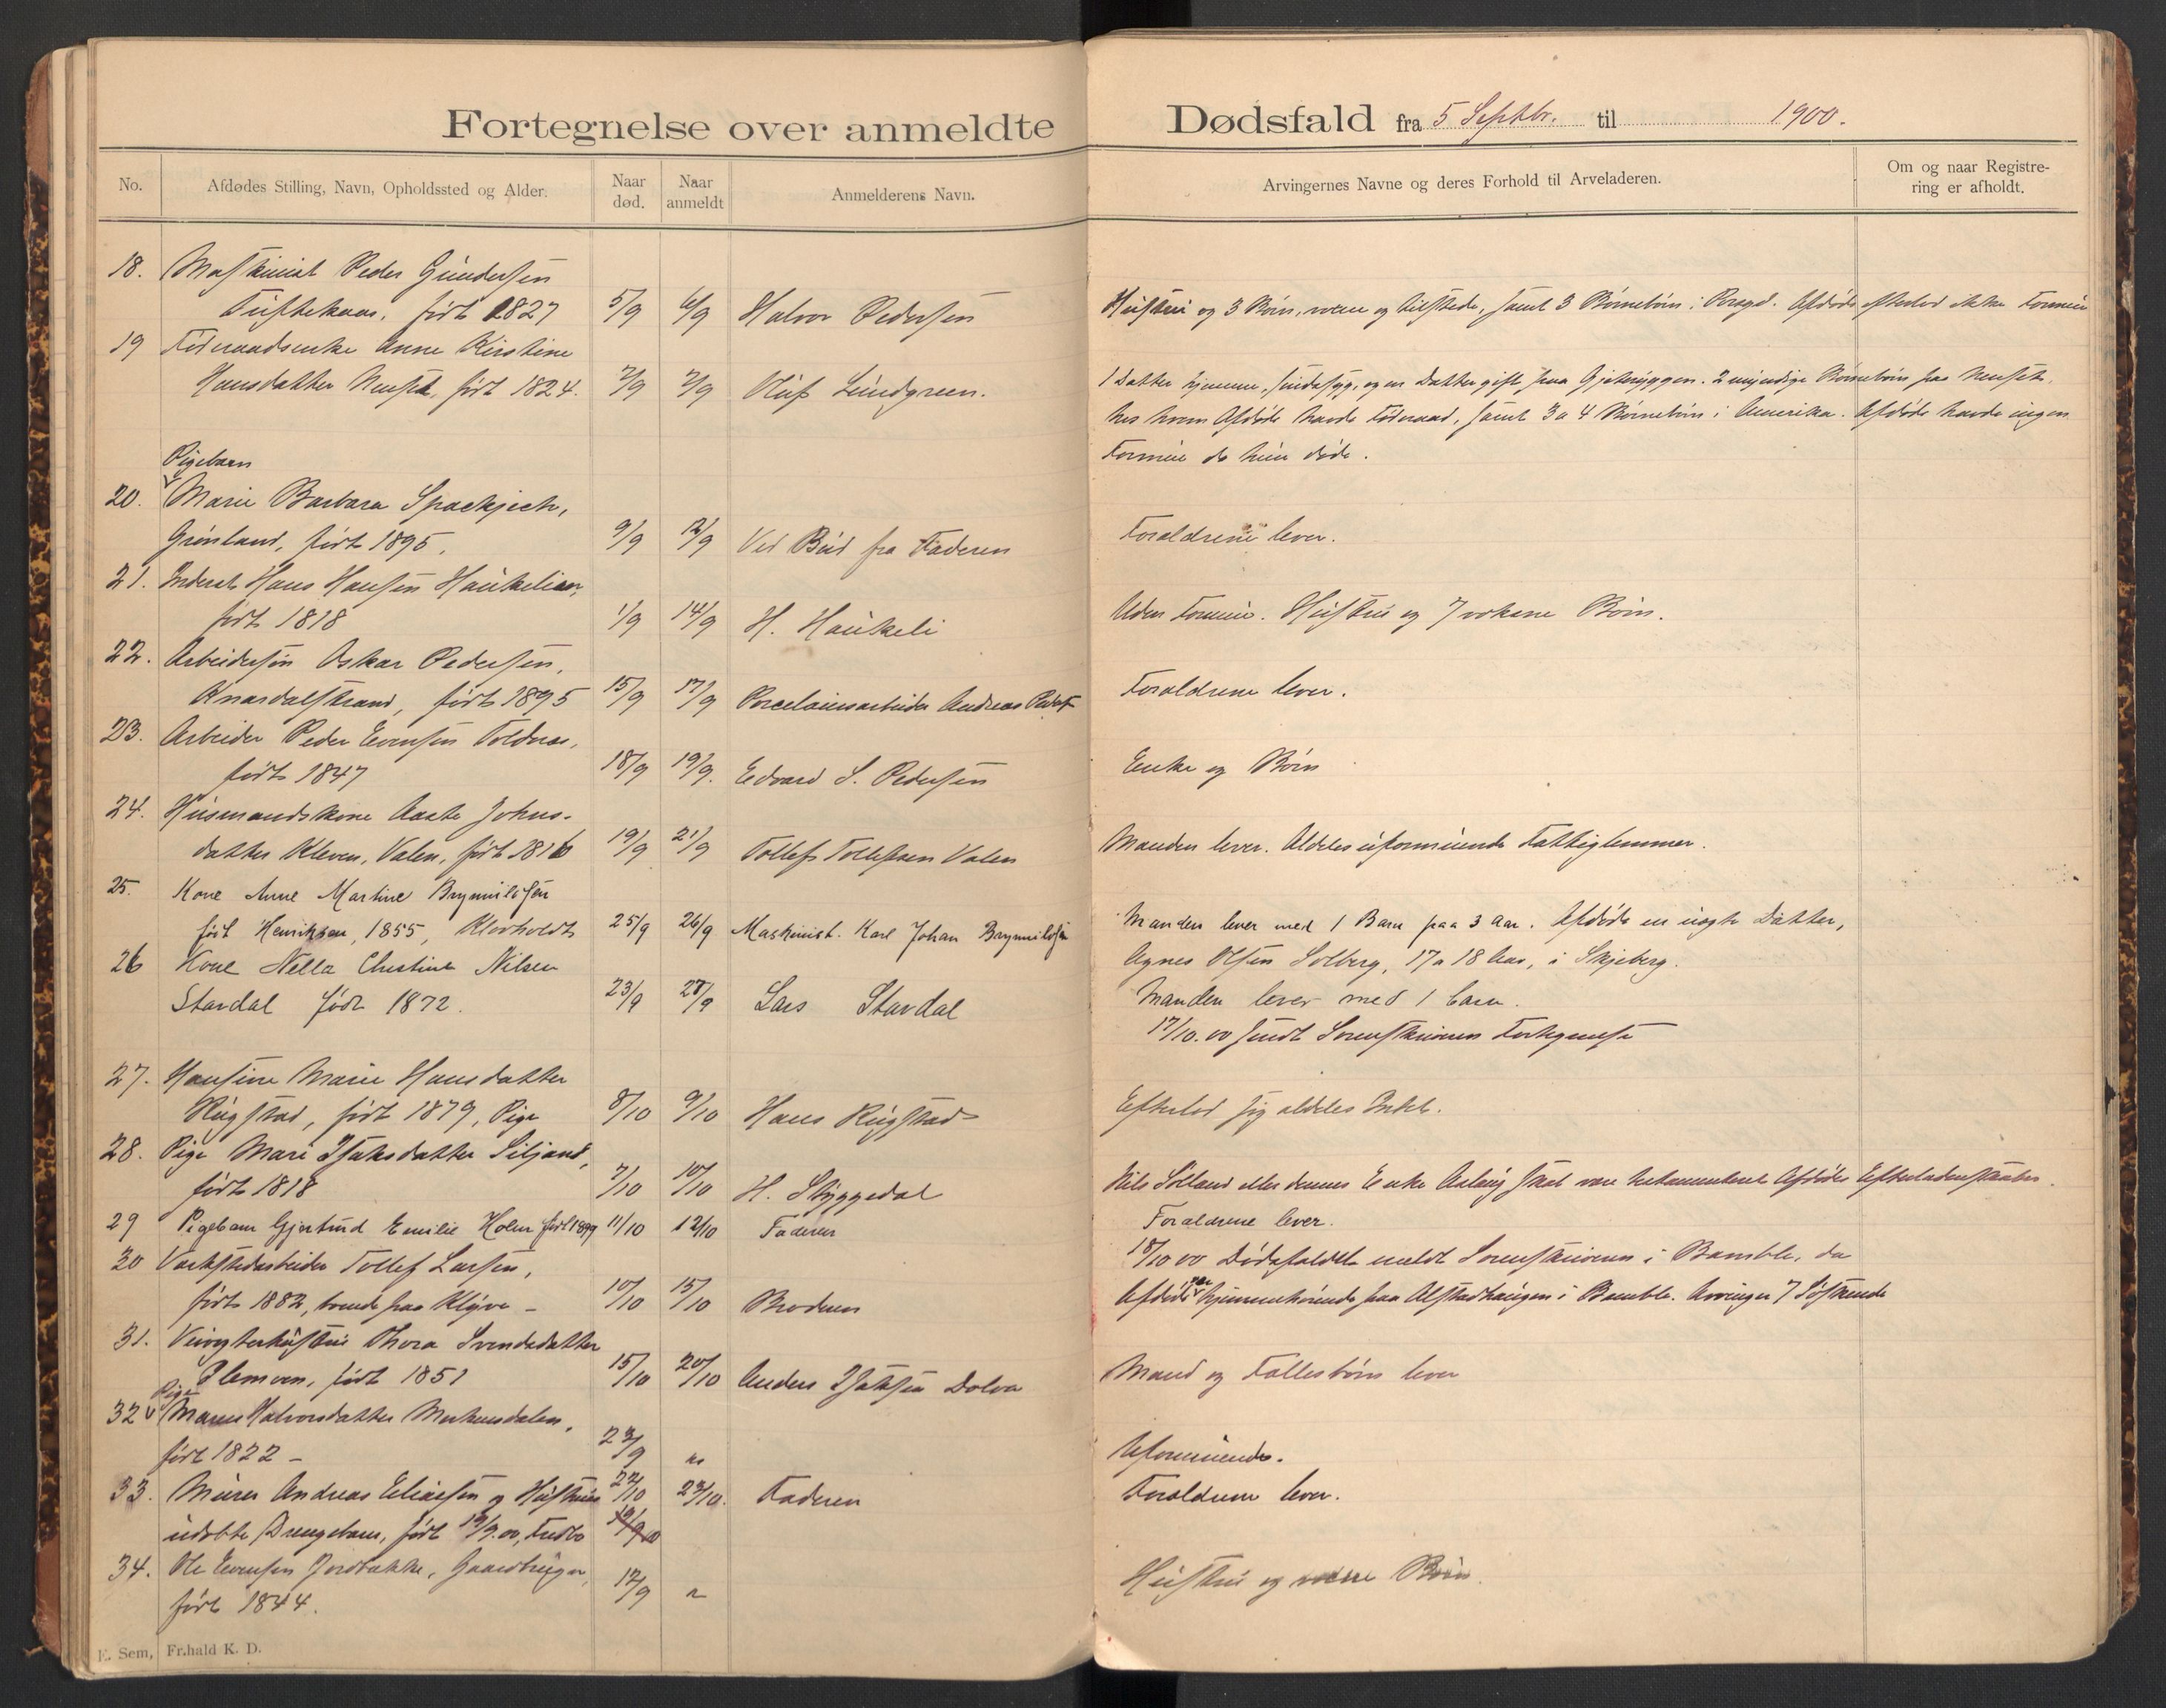 Fortegnelse over anmeldte Dødsfald fra 5 Septbr. til 1900.
No. Afdødes Stilling, Navn, Opholdssted og Alder. Naar død. Naar anmeldt Anmelderens Navn. Arvingernes Navne og deres Forhold til Arveladeren. Om og naar Registrering er afholdt.
18. Maskinist Peder Gundersen
Tuftekaas, født 1827 5/9 6/9 Halvor Pedersen Hustru og 3 Børn, voxne og tilstede, samt 3 Børnebørn i Porsgd. Afdøde efterlod ikke Formue
19 Føderaadsenke Anne Kirstine
Hansdatter født 1824. 7/9 7/9 Oluf Lundgreen. 1 Datter hjemme, sindssyg, og en Datter gift paa Gjeteryggen. 2 myndige Børnebørn paa
hos hvem Afdøde havde Føderaad, samt 3 a 4 Børnebørn i Amerika. Afdøde havde ingen
Formue da hun døde.
Pigebarn
20. Marie Barbara Spaekjech,
Grønland, født 1895. 9/9 12/9 Ved Bud fra Faderen Forældrene lever.
21. Inderst Hans Hansen Haukelien,
født 1818 1/9 14/9 H. Haukeli Uden Formue. Hustru og 7 voksne Børn.
22. Arbeidersøn Oskar Pedersen,
Knardalstrand, født 1895 15/9 17/9 Porcelainsarbeider Andreas Forældrene lever.
23. Arbeider Peder Evensen Foldnæs,
født 1847 18/9 19/9. Edvard S. Pedersen Enke og Børn
24. Husmandskone Aaste Johns-
datter Kleven, Valen, født 1816 19/9 21/9 Tollef Tollefsen Valen Manden lever. Aldeles uformuende Fattiglemmer.
25. Kone Anne Martine Brynnilsen
født Henriksen, 1855, Klovholdt 25/9 26/9 Maskinist. Karl Johan Brynnilsen Manden lever med 1 Barn paa 3 Aar. Afdøde en uægte Datter,
Agnes Olsen Solberg, 17 a 18 Aar, i Skjeberg.
26 Kone Nella Christine Nilsen
Stavdal født 1872. 23/9 27/9 Lars Stavdal Manden lever med 1 barn.
17/10.00 sendt Sorenskriveren Fortegnelse
27. Hansine Marie Hansdatter
Rugstad, født 1879, Pige 8/10 9/10 Hans Rugstad Efterlod sig aldeles Intet.
28. Pige Mari Isaksdatter Siljand,
født 1818 7/10 10/10 H. Skyggedal Nils Solland eller dennes Enke Aaslaug skal være testamenteret Afdødes Efterladenskaber.
29 Pigebarn Gjertrud Emilie Holm født 1899 11/10 12/10 Faderen Forældrene lever.
30 Værkstedarbeider Tollef Larsen,
født 1882, boende paa Klyve - 10/10 15/10 Broderen 18/10 00 Dødsfaldet meldt Sorenskriveren i Bamble, da
Afdøde var hjemmehørende paa Alstadhaugen i Bamble. Arvinger 7 Søskende
31. Veivogterhustru Thora Svendsdatter
Plemoen, født 1851 15/10 20/10 Anders Isaksen Dolva Mand og Fællesbørn lever
Pige
32 Maren Halvorsdatter
født 1822 - 23/9 Uformuende.
33. Murer Andreas Eliassen og Hustrues 22/10 23/10. Faderen Forældrene lever.
udøbte Drengebarn, født 19/9.00,
34. Ole Evensen Jordbakke, Gaardbruger,
født 1844. 12/9 Hustru og voxne Børn.
E. Sem, Fr.hald K. D.